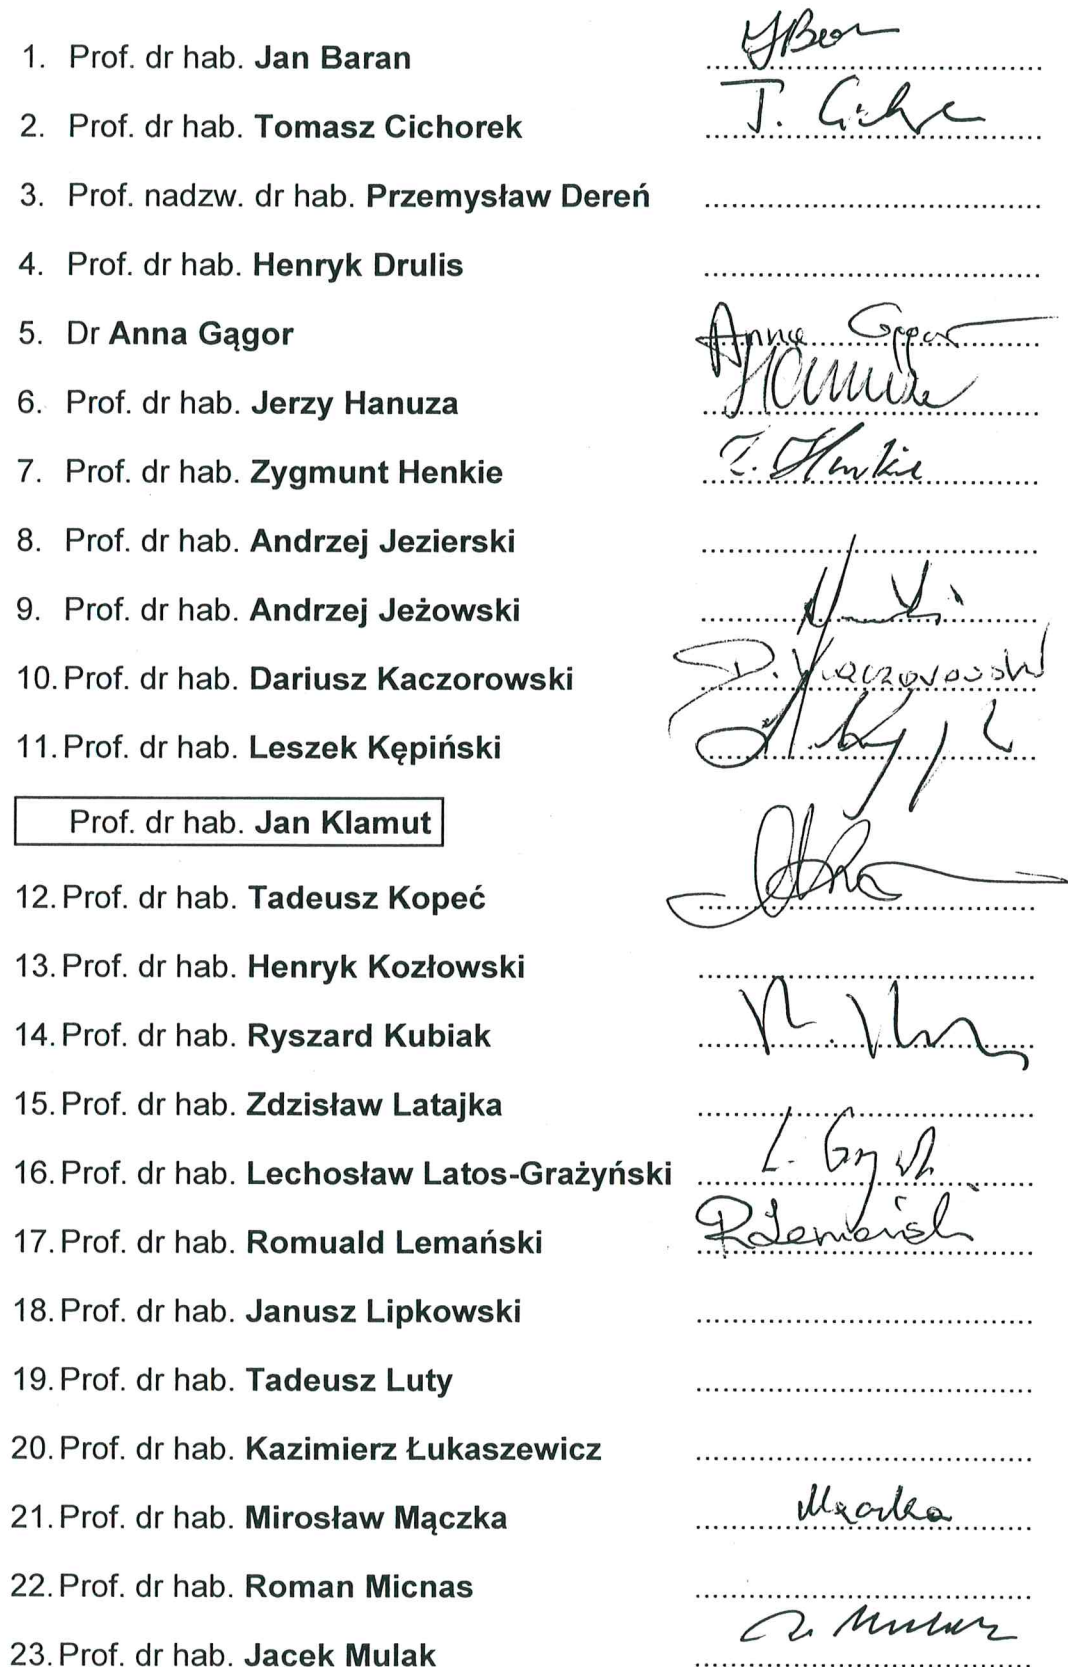 1. Prof. dr hab. Jan Baran
2. Prof. dr hab. Tomasz Cichorek T.
3. Prof. nadzw. dr hab. Przemysław Dereń
4. Prof. dr hab. Henryk Drulis
5. Dr Anna Gągor Anna Gągor
6. Prof. dr hab. Jerzy Hanuza Hanuza
7. Prof. dr hab. Zygmunt Henkie Z. Henkie
8. Prof. dr hab. Andrzej Jezierski
9. Prof. dr hab. Andrzej Jeżowski
10. Prof. dr hab. Dariusz Kaczorowski D. Kaczorowski
11. Prof. dr hab. Leszek Kępiński
Prof. dr hab. Jan Klamut
12. Prof. dr hab. Tadeusz Kopeć
13. Prof. dr hab. Henryk Kozłowski
14. Prof. dr hab. Ryszard Kubiak
15. Prof. dr hab. Zdzisław Latajka
16. Prof. dr hab. Lechosław Latos-Grażyński L.
17. Prof. dr hab. Romuald Lemański R Lemański
18. Prof. dr hab. Janusz Lipkowski
19. Prof. dr hab. Tadeusz Luty
20. Prof. dr hab. Kazimierz Łukaszewicz
21. Prof. dr hab. Mirosław Mączka Mączka
22. Prof. dr hab. Roman Micnas
23. Prof. dr hab. Jacek Mulak Mulak